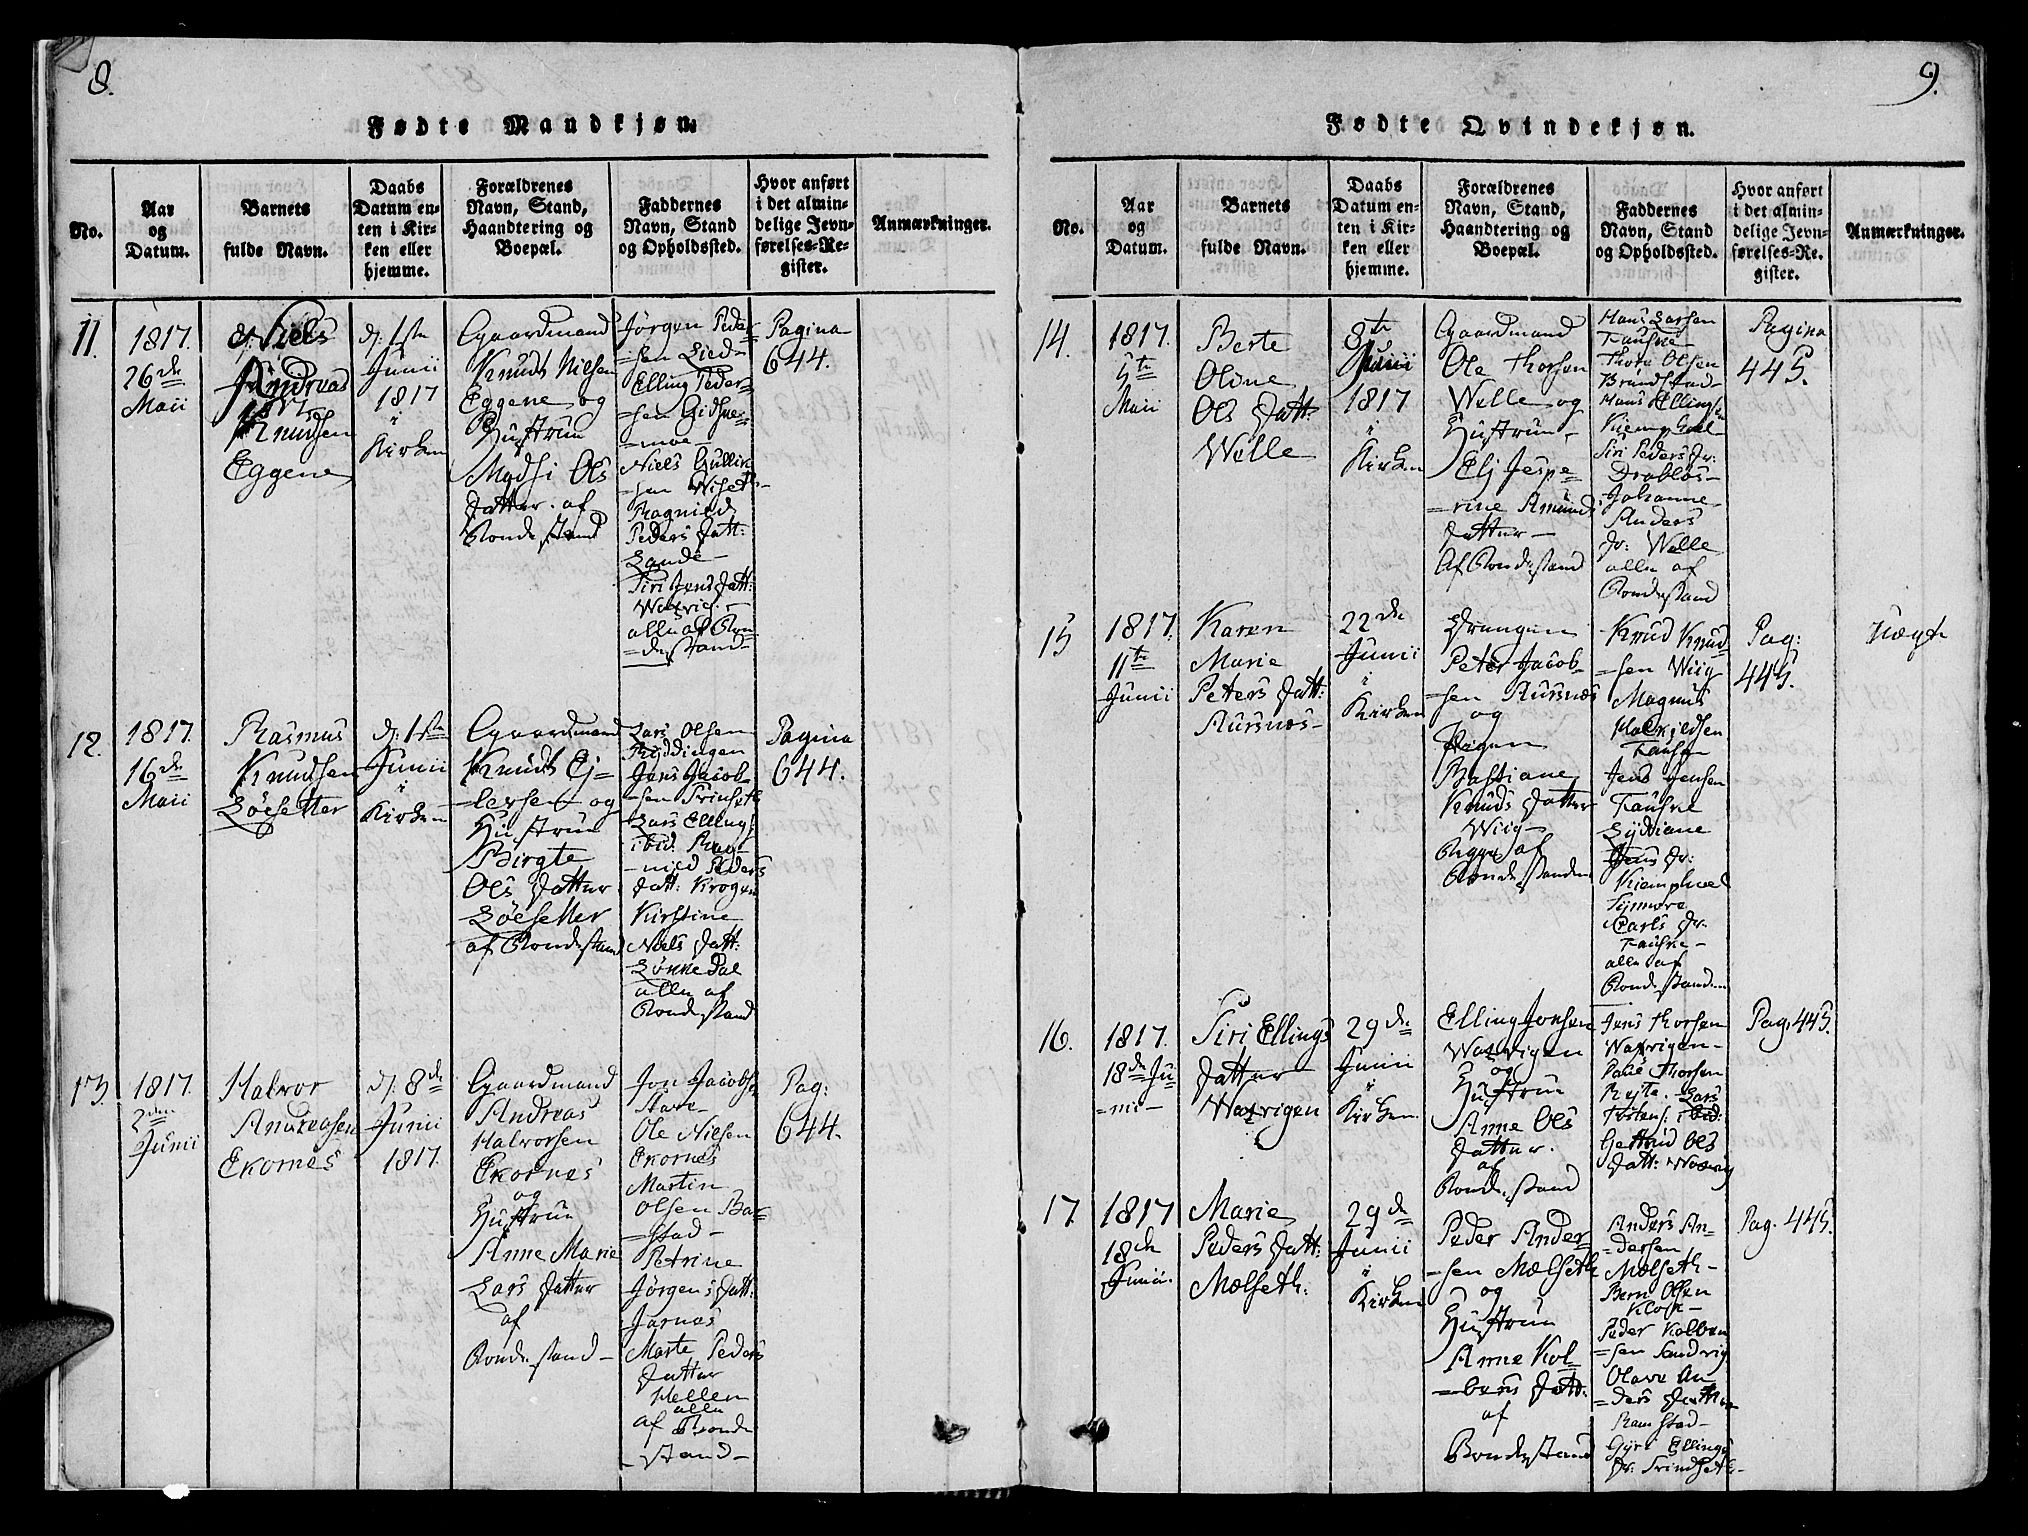 8.
Fødte Mandkjøn.
No.
Aar
og
Datum.
Barnets
fulde Navn.
Daabs
Datum en-
ten i Kir-
ken eller
hjemme.
Forældrenes
Navn, Stand,
Haandtering og
Boepæl.
Faddernes
Navn, Stand
og Opholdssted.
Hvor anført
i det almin-
delige Jevn-
førelses-Re-
gister.
Anmærkninger.
11.
1817.
26de
Maii
Niels
Andreas
Knudsen
Eggene
d. 1ste
Junii
1817
i
Kirken
Gaardmand
Knud Nielsen
Eggene og
Hustrue
Madsi Ols
Datter. af
Bondestand
Jørgen Peder
=sen Lied=
Elling Peder=
=sen Gidske=
=moe=
Niels Gullik
=sen Wiseth=
Ragnild
Peders Datt:
Lande=
Siri Jens Datt:
Watrig.=
alle af Bon=
=destand=
Pagina
644.
12.
1817.
16de
Maii
Rasmus
Knudsen
Løesetter
d. 1ste
Junii
i
Kirken
Gaardmand
Knud Ej=
=lersen og
Hustrue
Birgte
Ols Datter
Løesetter
af Bondestand
Lars Olsen
Ryddingen
Jens Jacob=
=sen Trinseth
Lars Ellings
ibid. Rag=
=nild Peders
Datt: Krogen
Kirstine
Niels Datt:
Lønke Dal
alle af
Bondestand
Pagina
644.
13.
1817.
2den
Junii
Halvor
Andreasen
Ekornes
d. 8de
Junii
1817.
Gaardmand
Andreas
Halvorsen
Ekornes
og
Hustrue
Anne Marie
Lars Datter
af
Bondestand=
Jon Jacobsen
Stave=
Ole Nielsen
Ekornes
Martin
Olsen Bar=
=stad=
Petrine
Jørgens Datt:
Jarnes
Marte Peders
Datter
Hellen
alle
af Bonde
=stand=
Pag:
644.
9.
Fødte Qvindekjøn.
No.
Aar
og
Datum.
Barnets
fulde Navn.
Daabs
Datum en-
ten i Kir-
ken eller
hjemme.
Forældrenes
Navn, Stand,
Haandtering og
Boepæl.
Faddernes
Navn, Stand
og Opholdssted.
Hvor anført
i det almin-
delige Jevn-
førelses-Re-
gister.
Anmærkninger.
14.
1817.
5te
Maii
Berte
Oline
Ols Datt:
Welle
8de
Junii
1817
i
Kirken
Gaardmand
Ole Thorsen
Welle og
Hustrue=
Elj Jespe=
=rine Amunds
Datter=
Af Bondestand
Hans Larsen
Fauske
Thore Olsen
Brandstad=
Hans Ellingsen
Kiemphoel
Siri Peders Dr:
Drabløs=
Johanne
Anders
Dr: Welle
alle af
Bondestand
Pagina
445.
15
1817.
11te
Junii
Karen
Marie
Peters Datt:
Aursnes=
22de
Junii
i
Kirken
Drengen
Peter Jacob=
=sen Aursnes
og
Pigen
Bastiane
Knuds Datter
Wiig=
Begge af
Bondestanden
Knud Knud=
=sen Wiig
Magnus
Halkieldsen
Fausken
Jens Jensen
Fauske
Lydiane
Jens Dr:
Kiemphoel
Synnøve
Carls Dr.
Fauske=
alle af
Bondestanden
Pag:
445.
Uægte
16.
1817.
18de Ju=
=nii=
Siri Ellings
Datter
Watrigen
29de
Junii
i
Kirken.
Elling Jonsen
Watrigen
og
Hustrue
Anne Ols
Datter.
af
Bondestand
Jens Thorsen
Watrigen=
Paul Thorsen
Ryte. Lars
Tostens. ibid:
Gertrud Ols
Datt: Watrig
Pag. 445.
17.
1817
18de
Junii.
Marie
Peders Datt:
Mælseth:
29de
Junii
i
Kirken
Peder Ander=
=sen Mælseth
og
Hustrue
Anne Kol=
=bens Datt:
af
Bondestand
Anders An=
=dersen
Mælseth=
Bern Olsen
Klok=
Peder Kolben
=sen Sandvig
Olave An
=ders Datter
Ramstad=
Gyri Ellings
Dr: Trindseth=
Pag. 445.